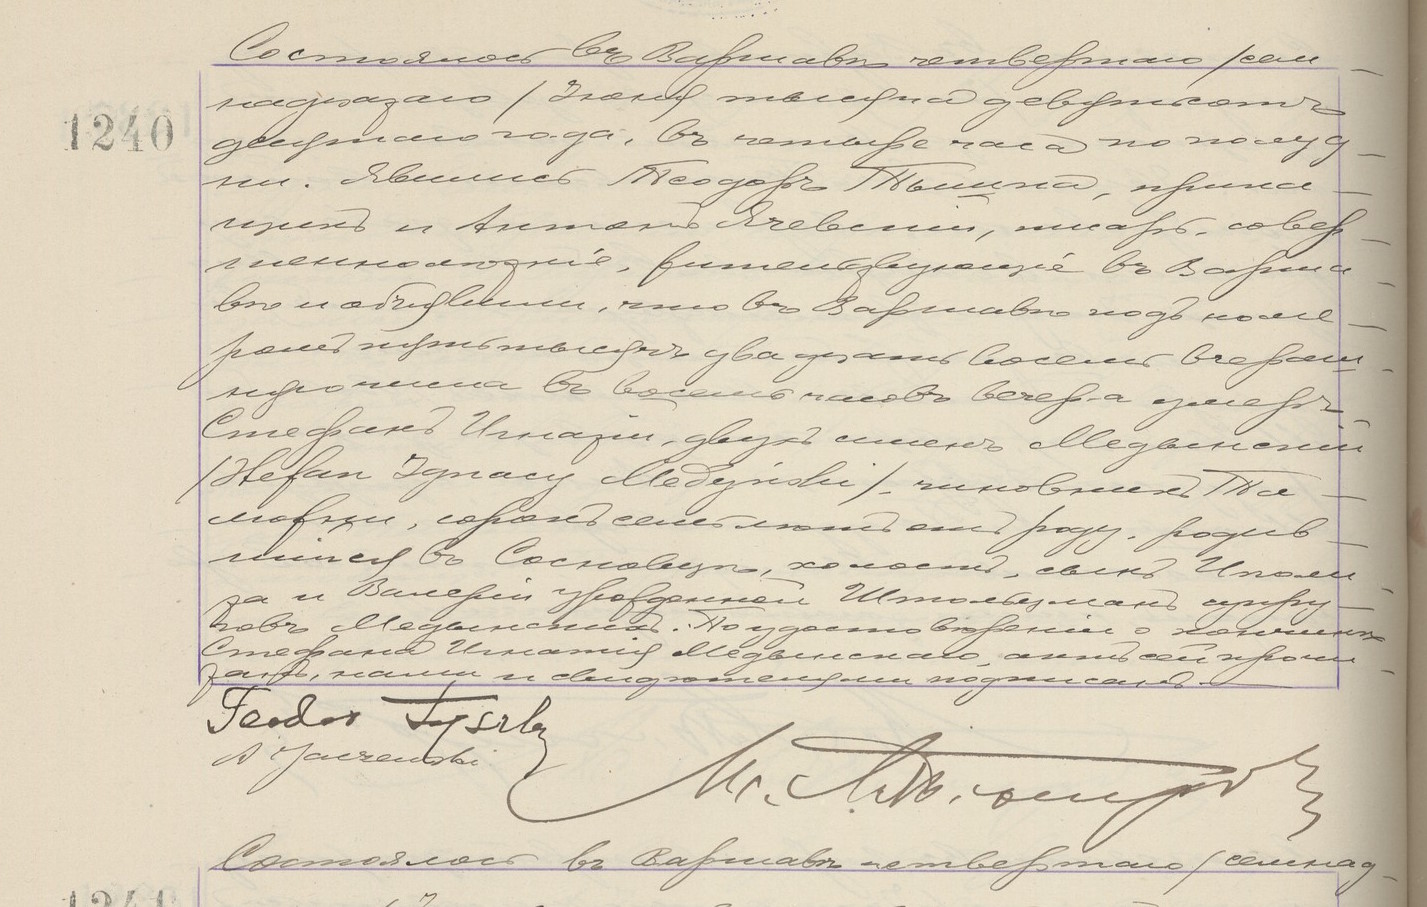 Состоялось въ Варшавѣ четвертаго /сем
1240
надцатаго/ Іюня тысяча девятьсотъ
десятаго года, въ четыре часа по полуд
ни. Явились Теодоръ Тышка, прика
щикъ и Антонъ Ячевскій, писарь, совер
шеннолѣтніе, жительствующіе въ Варша
вѣ и объявили, что въ Варшавѣ подъ номе
ромъ пять тысячъ двадцать восемь вчераш
няго числа въ восемь часовъ вечера умеръ
Стефанъ Игнатій, двухъ именъ Медынскій
/Stefan Ignacy Medyński/. чиновникъ Та
можни, сорокъ семь лѣтъ отъ роду, родив
шійся въ Сосновцѣ, холостъ, сынъ
и Валеріи урожденной Штольцманъ супру
говъ Медынскихъ. По удостовѣреніи о кончинѣ
Стефана Игнатія Медынскаго, актъ сей прочи
танъ, нами и свидѣтелями подписанъ.
Teodor
A Jaczewski
Состоялось въ Варшавѣ четвертаго /семнад
1241